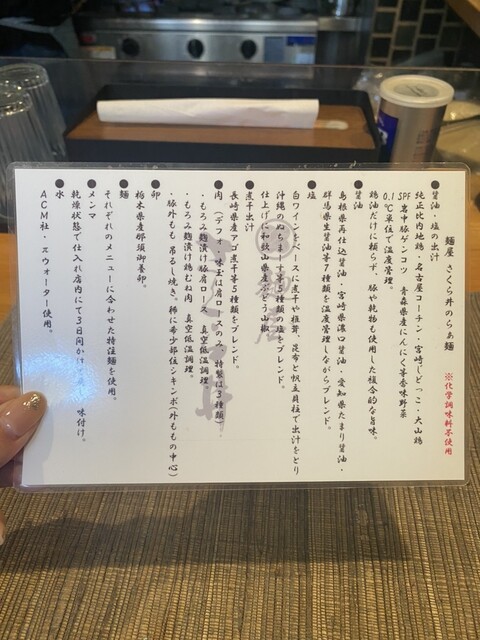 麺屋 さくら井のらぁ麺 ※化学調味料不使用
●醤油・塩の出汁
純正比内地鶏・名古屋コーチン・宮崎じどっこ・大山鶏
SPF豚中豚ゲンコツ 青森県産にんにく等香味野菜
0.1℃単位で温度管理。
鶏油だけに頼らず、豚や乾物も使用した複合的な旨味。
●醤油
島根県再仕込醤油・宮崎県濃口醤油・愛知県たまり醤油・
群馬県生醤油等7種類を温度管理しながらブレンド。
●塩
白ワインをベースに煮干や椎茸、昆布と帆立貝柱で出汁をとり
沖縄のぬちまーす等5種類の塩をブレンド。
仕上げに和歌山県産ぶどう山椒
●煮干出汁
長崎県産アゴ煮干等5種類をブレンド。
●肉(デフォ・味玉は肩ロースのみ、特製は3種類)。
・もろみ麹漬け豚肩ロース 真空低温調理。
・もろみ麹漬け鶏むね肉 真空低温調理。
・豚外もも 吊るし焼き。稀に希少部位シキンボ(外ももの中心)
●卵
栃木県産那須御養卵。
●麺
それぞれのメニューに合わせた特注麺を使用。
●メンマ
乾燥状態で仕入れ店内にて3日間かけ 味付け。
●水
ACM社・πウォーター使用。